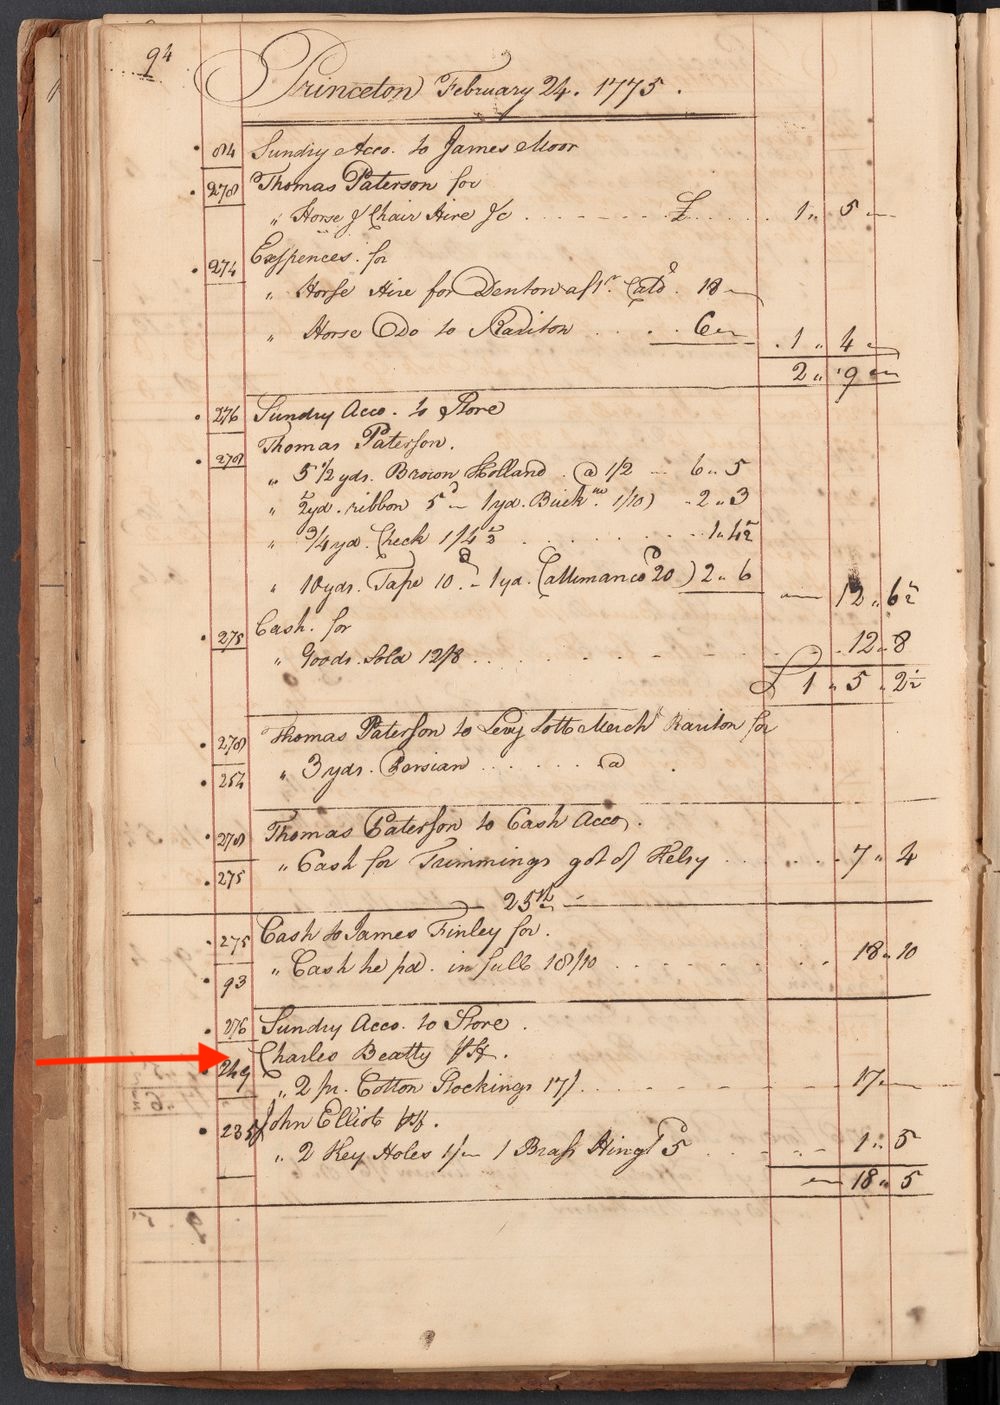 94
Princeton February 24. 1775.
84 Sundry Acco. to James Moor
278 Thomas Paterson for
" Horse & Chair Hire &c £ 1 " 5 "
274 Expences. for
" Horse Hire for Denton aftr. Catd. 18 "
" Horse Do to Rariton 6 " 1 " 4 "
2 " 9 "
276 Sundry Acco. to Store
278 Thomas Paterson.
" 5 1/2 yds. Brown Holland @ 1/2 6 " 5
" 1/2 yd. ribbon 5d 1 yd. Buckm. 1/10) 2 " 3
" 3/4 yd. Check 1/4 1/2 1 " 4 1/2
" 10 yds. Tape 10d 1 yd. Callimanco 20d) 2 " 6 12 " 6 1/2
275 Cash. for
" Goods. Sold 12/8 12 " 8
£ 1 " 5 " 2 1/2
278 Thomas Paterson to Levy Lott Mercht Rariton for
254 " 3 yds. Persian @
278 Thomas Paterson to Cash Acco.
275 " Cash for Trimmings got of Kelsy 7 " 4
25th
275 Cash to James Finley for.
93 " Cash he pd. in full 18/10 18 " 10
276 Sundry Acco. to Store.
249 Charles Beatty
" 2 pr. Cotton Stockings 17/ 17 "
235 John Elliot
" 2 Key Holes 1/ 1 Brass Hinge 5d 1 " 5
18 " 5